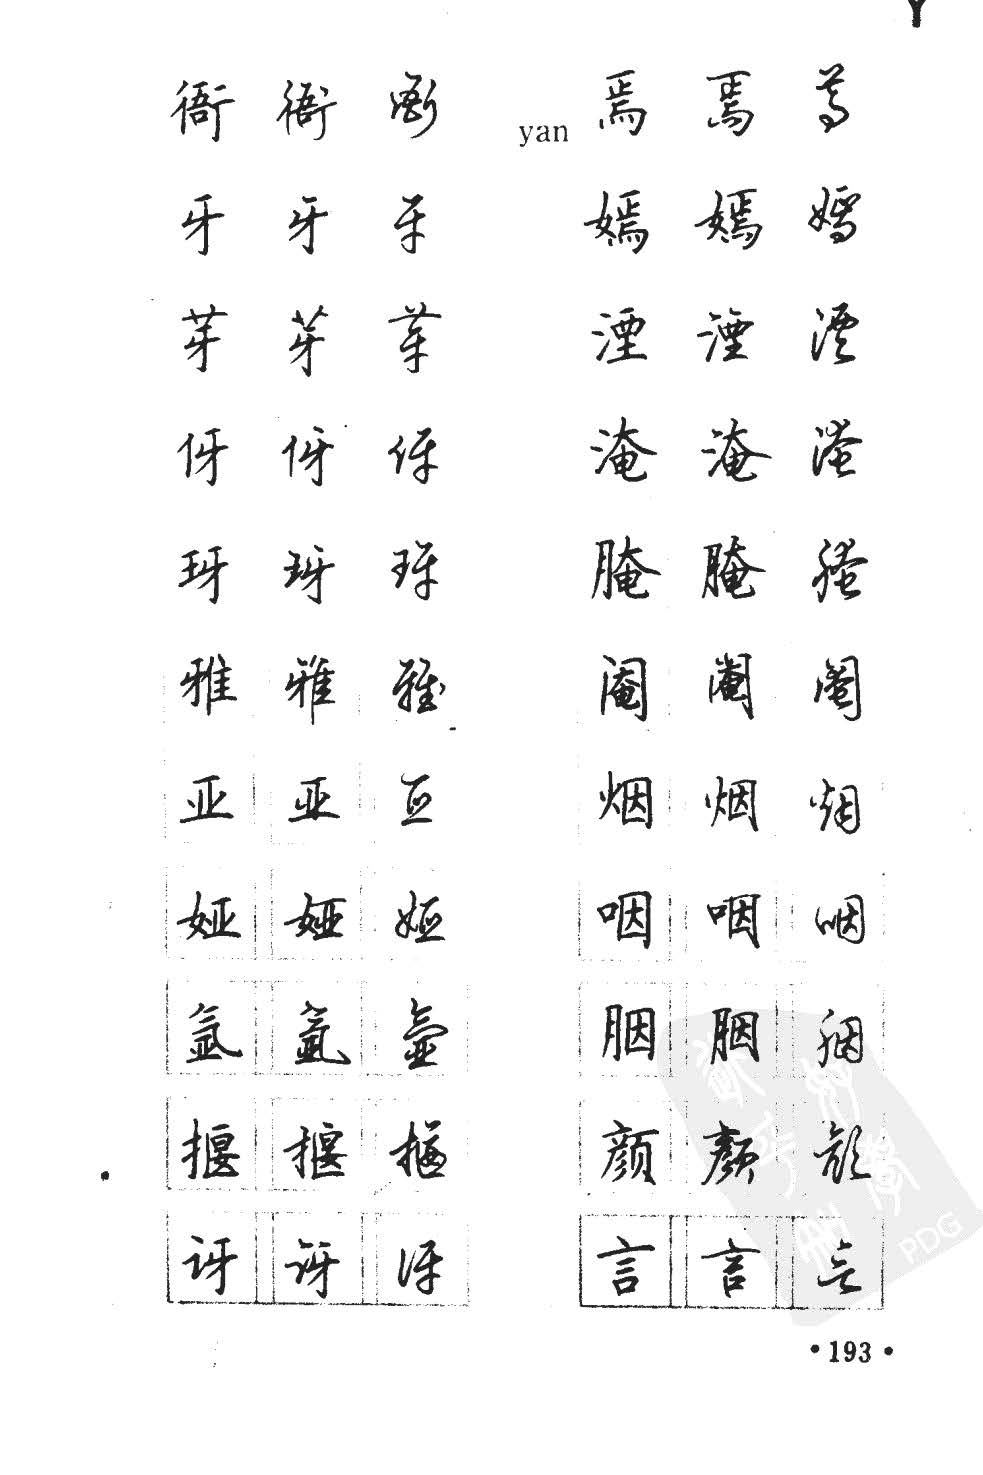 Y
衙 衙 衙
牙 牙 牙
芽 芽 芽
伢 伢 伢
玡 玡 玡
雅 雅 雅
亚 亚 亚
娅 娅 娅
氩 氩 氩
揠 揠 揠
讶 讶 讶
yan 焉 焉 焉
嫣 嫣 嫣
湮 湮 湮
淹 淹 淹
腌 腌 腌
阉 阉 阉
烟 烟 烟
咽 咽 咽
胭 胭 胭
颜 颜 颜
言 言 言
PDG
·193·